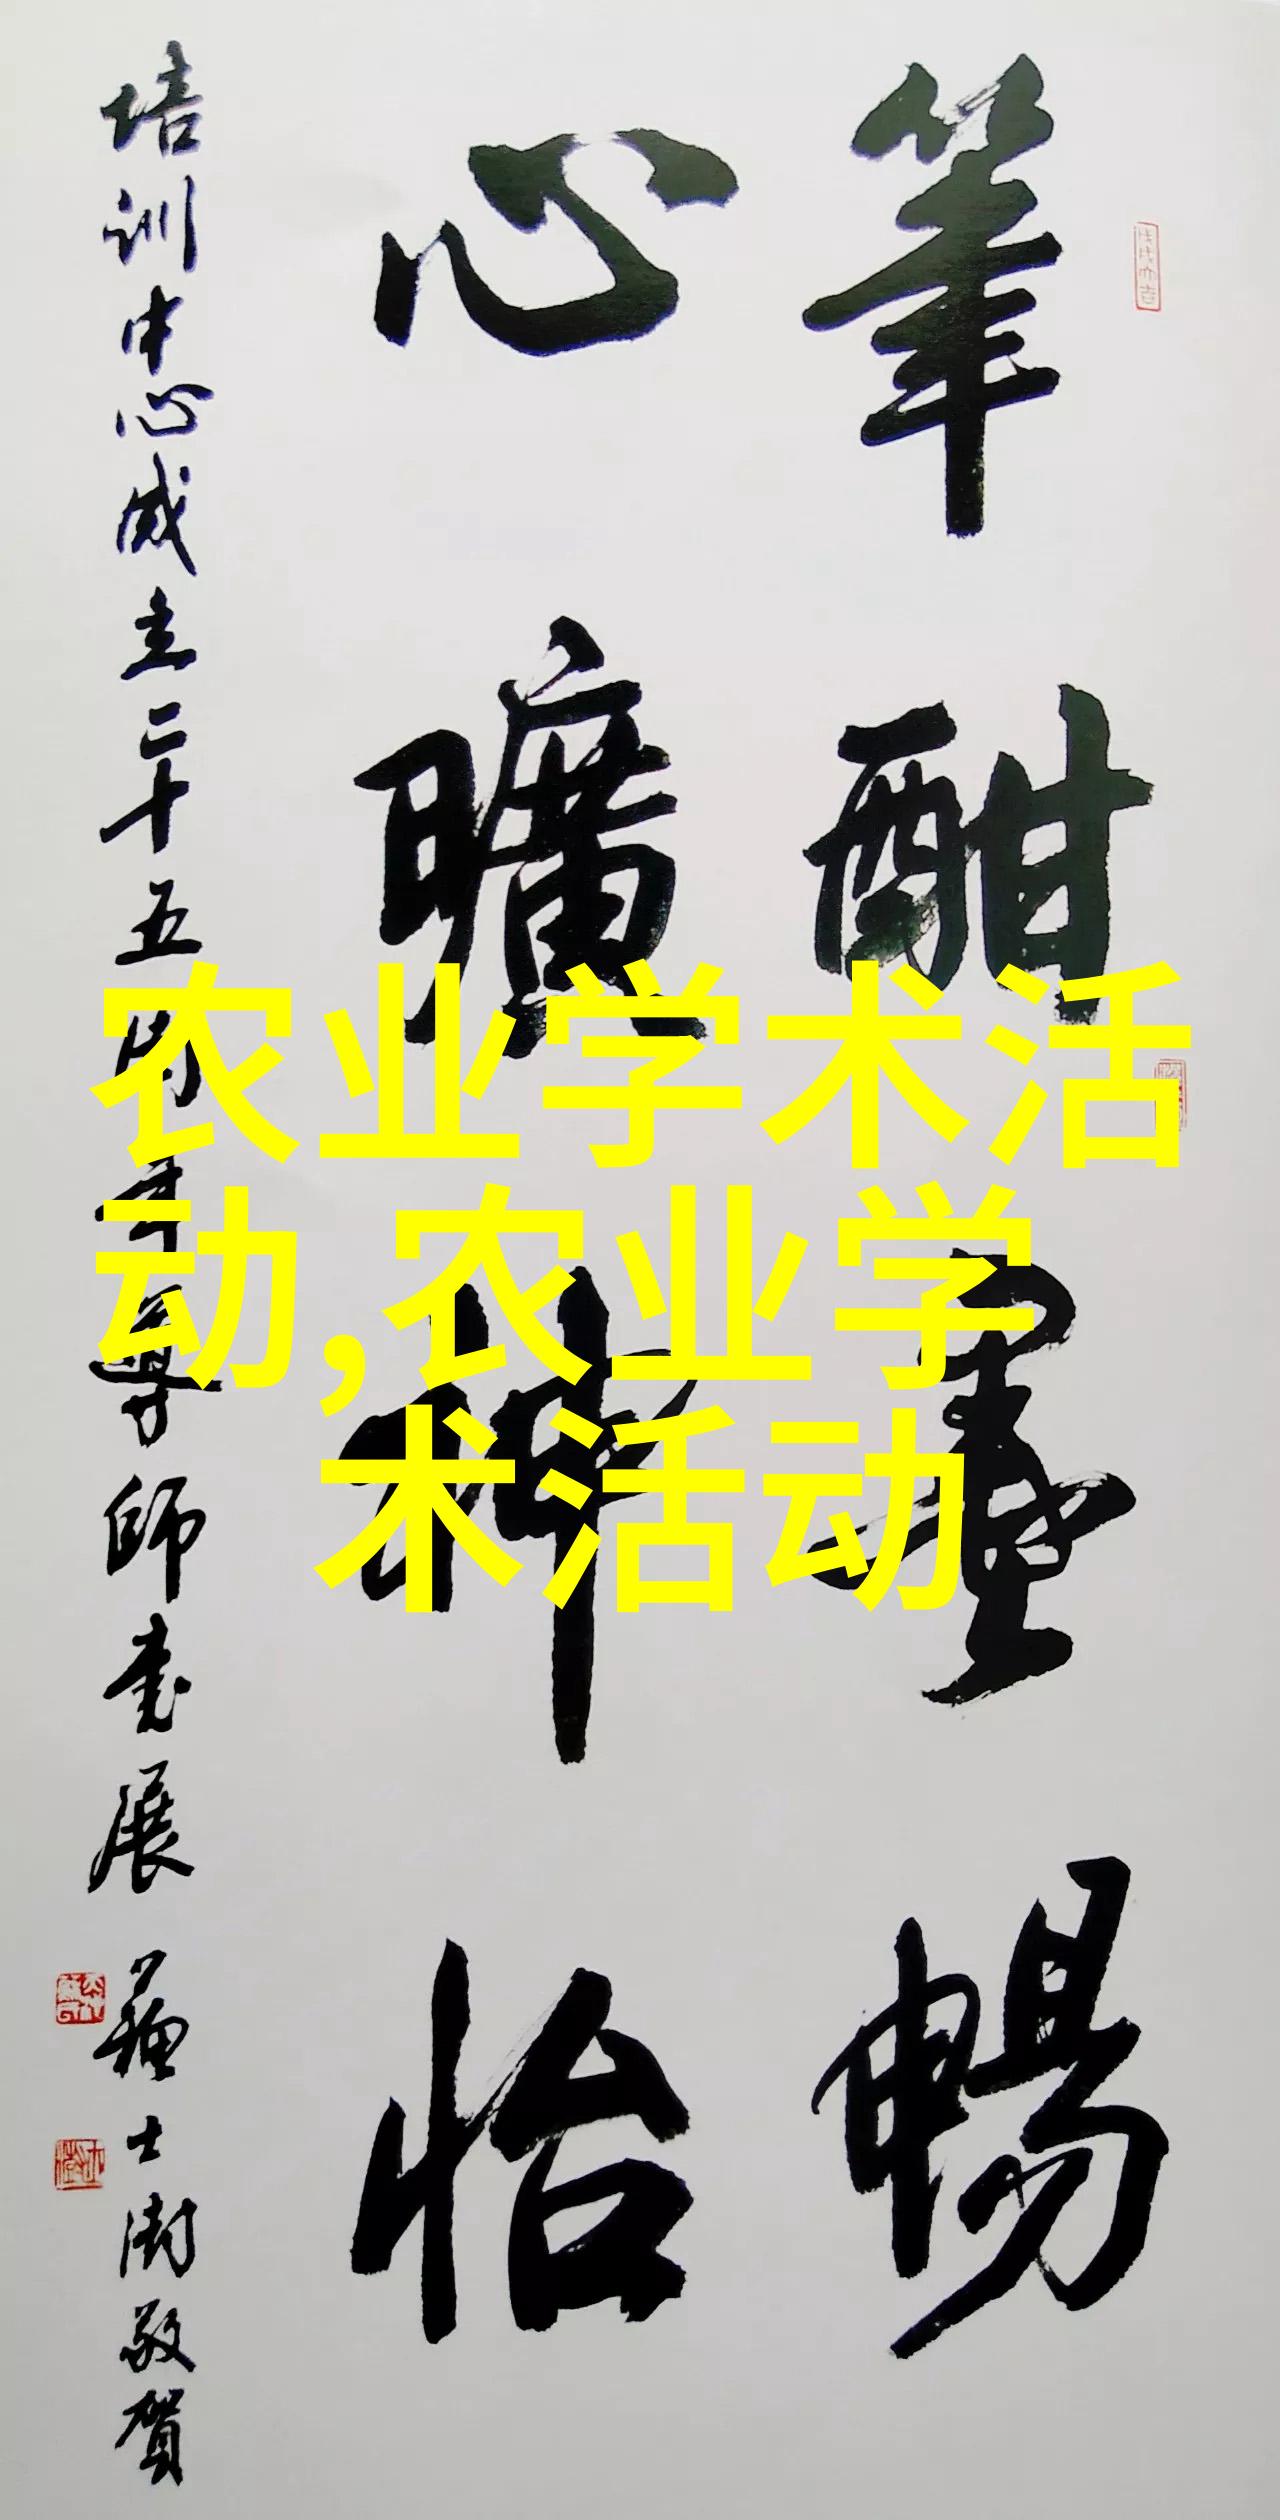 筆酣墨暢
心曠神怡
培訓中心成立二十五周年導師書展
蘇士澍敬賀
农业学术活
动,农业学
术活动